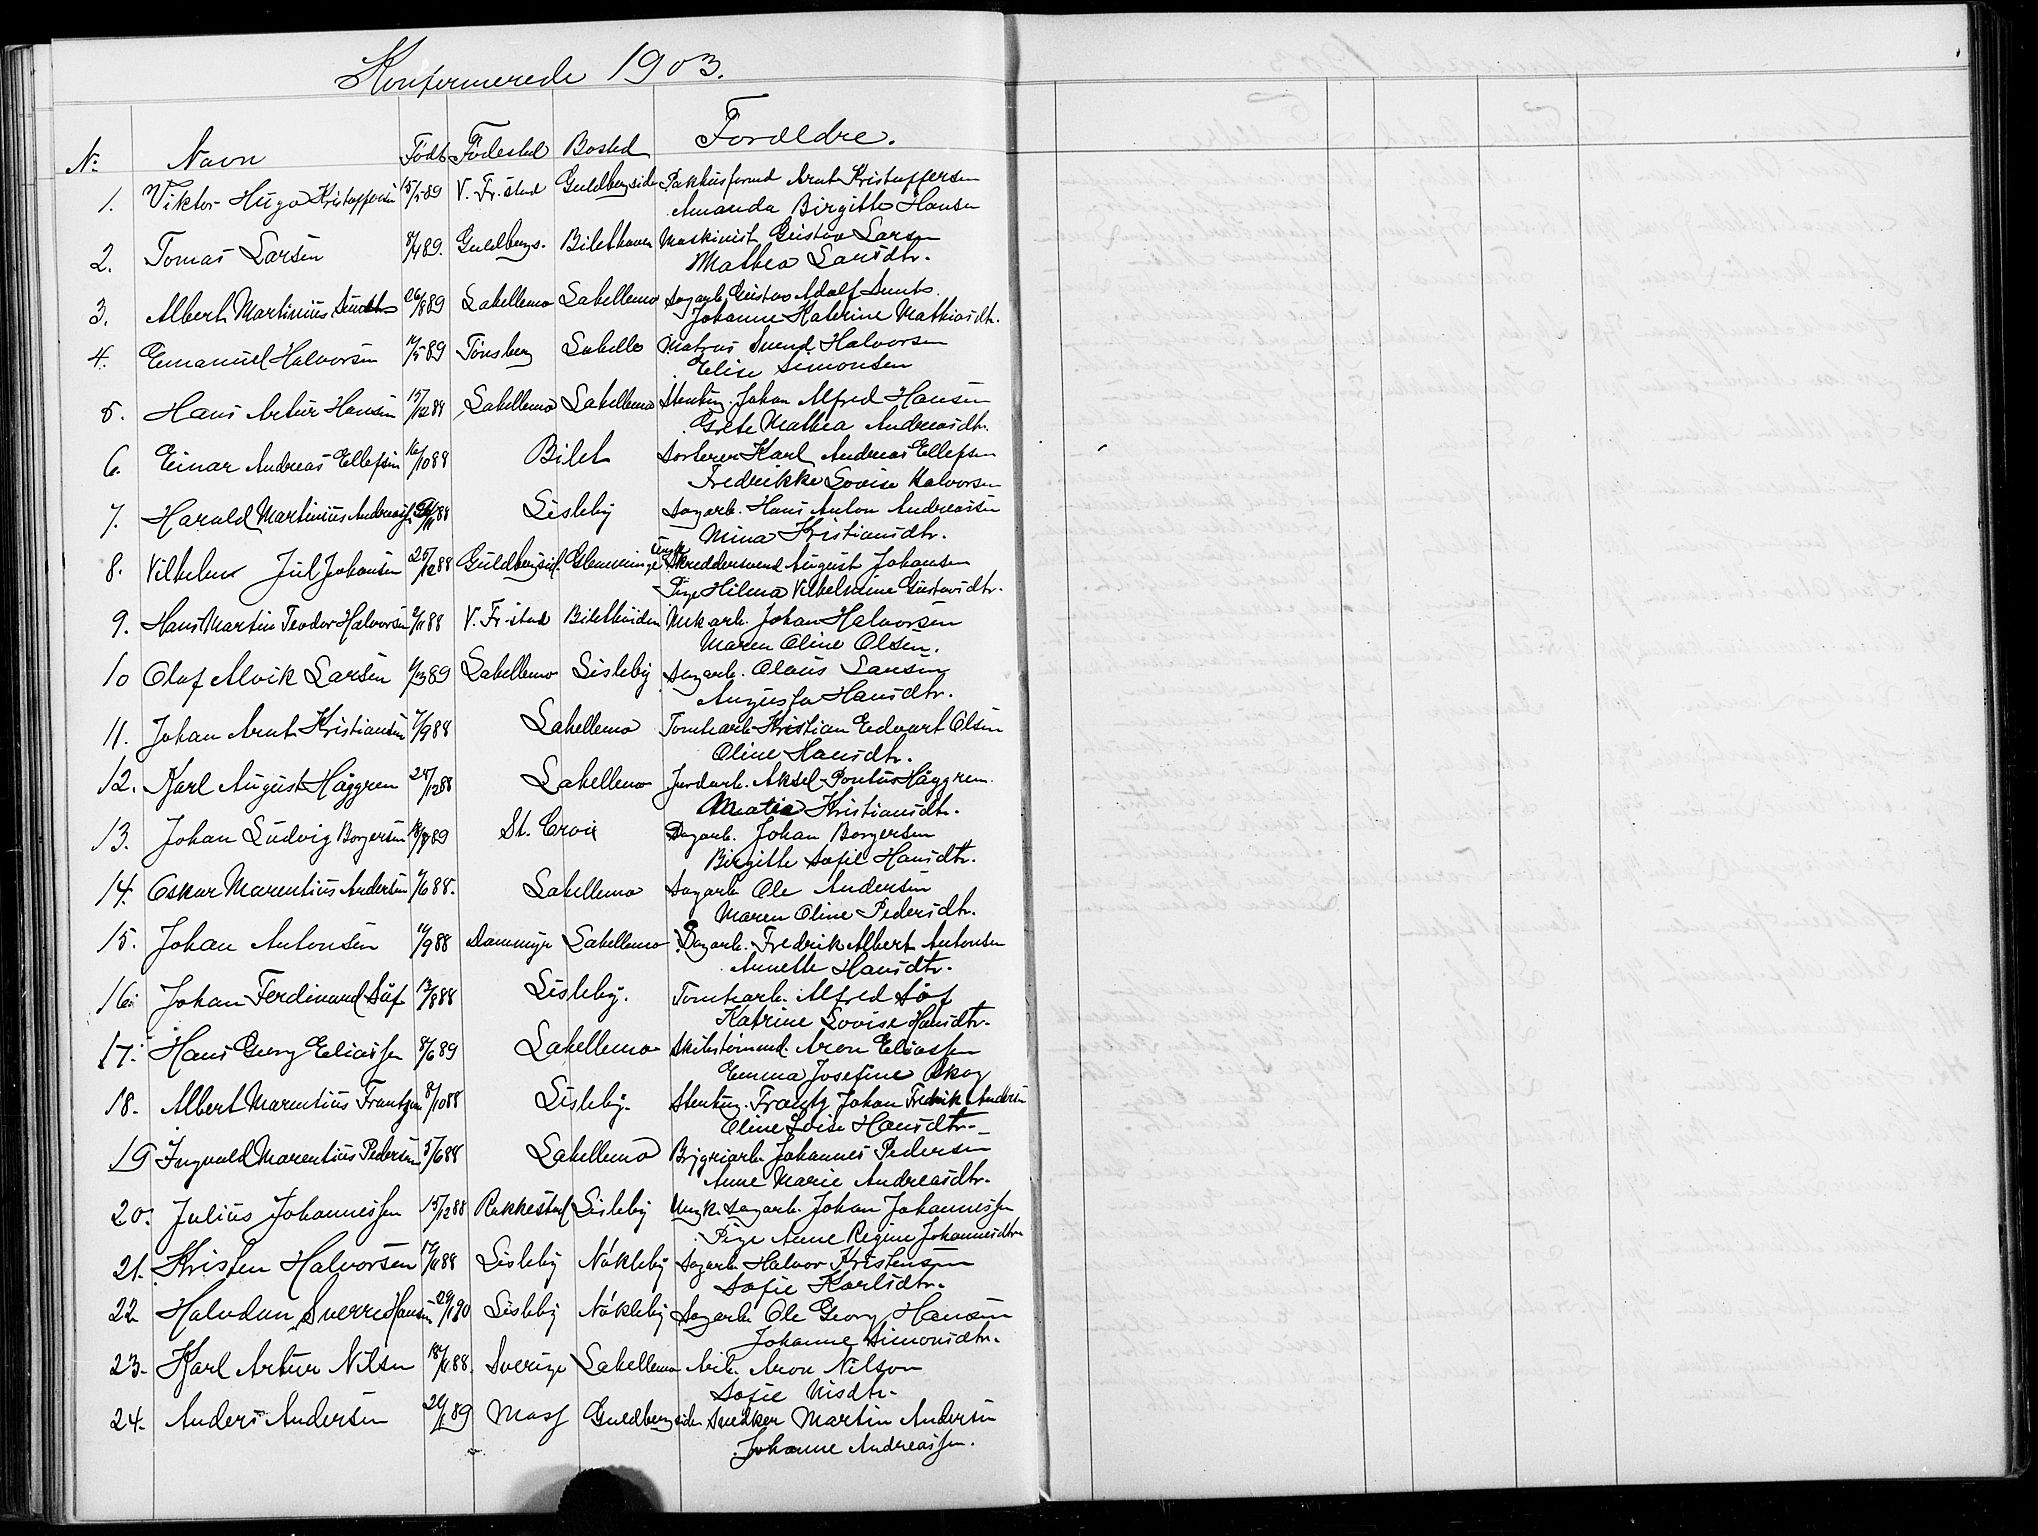 Konfermerede 1903.
No Navn Født Fødested Bosted Foreldre.
1. Viktor Hugo Kristoffersen 15/5 89 V. Fr.stad Guldbergsiden Pakhusformd Arnt Kristoffersen
Amanda Birgitte Hansen
2. Tomas Larsen 89. Guldbergs. Bilethaven Maskinist Gustav Larsen
Mathea Larsdtr.
3. Albert Martinius 26/8 89 Labellemo Labellemo Sagarb. Gustav Adolf
Johanne Katerine Mathiasdtr.
4. Emanuel Halvorsen 89 Tønsberg Labelle Matros Svend Halvorsen
Elise Simonsen
5. Hans Artur Hansen 15/12 88 Labellemo Labellemo Stenhug. Johan Alfred Hansen
Grete Mathea Andreasdtr.
6. Einar Andreas Ellefsen 16/10 88 Bilet Sorterer Karl Andreas Ellefsen
Fredrikke Lovise Halvorsen
7. Harald Martinius Andreass. 88 Lisleby Sagarb. Hans Anton Andreassen
Mina Kristiansdtr.
8. Vilhelm Jul Johansen 25/12 88 Guldbergsid. Glemminge Ungk. Skreddersvend August Johansen
Pige Hilma Vilhelmine Gustavsdtr.
9. Hans Martin Teodor Halvorsen 2/11 88 V. Fr.stad Mek arb. Johan Halvorsen
Maren Oline Olsen.
10 Olaf Alvik Larsen 89 Labellemo Lisleby Sagarb. Olaus Larsen
Augusta Hansdtr.
11. Johan Arnt Kristiansen 7/9 88 Labellemo Tomtearb. Kristian Edvart Olsen
Oline Hansdtr.
12. Karl August Häggren 28/12 88 Labellemo Jordarb. Aksel Pontus Häggren.
Matea Kristiansdtr.
13. Johan Ludvig Borgersen 89 St. Croix Dagarb. Johan Borgersen
Birgitte Sofie Hansdtr.
14. Oskar Marentius Andersen 88. Labellemo Sagarb. Ole Andersen
Maren Oline Pedersdtr.
15. Johan Antonsen 88 Dammyr Labellemo Dagarb. Fredrik Albert Antonsen
Annette Hansdtr.
16. Johan Ferdinand Säf 13/8 88 Lisleby. Tomtearb. Alfred Säf
Katrine Lovise Hansdtr.
17. Hans Georg Eliassen 8/6 89 Labellemo Skibstømmd. Aron Eliassen
Emma Josefine Skog
18. Albert Marentius Frantzen 8/10 88 Lisleby. Stenhug. Frantz Johan Fredrik Andersen
Oline Lovise Hansdtr.
19 Ingvald Marentius Pedersen 5/6 88 Labellemo Bryggeriarb. Johannes Pedersen
Anne Marie Andreasdtr.
20. Julius Johannessen 15/12 88 Rakkestad Lisleby Ungk. Sagarb. Johan Johannessen
Pige Anne Regine Johannesdtr
21. Kristen Halvorsen 88 Lisleby Nøkleby Sagarb. Halvor Kristensen
Sofie Karlsdtr.
22 Halvdan Sverre Hansen 29/1 90 Lisleby Nøkleby Sagarb. Ole Georg Hansen
Johanne Simonsdtr.
23. Karl Artur Nilsen 88. Sverige Labellemo Arb. Aron Nilson
Sofie Nisdtr.
24. Anders Andersen 89 Moss Guldbergsiden Snedker Martin Andersen
Johanne Andreassen.